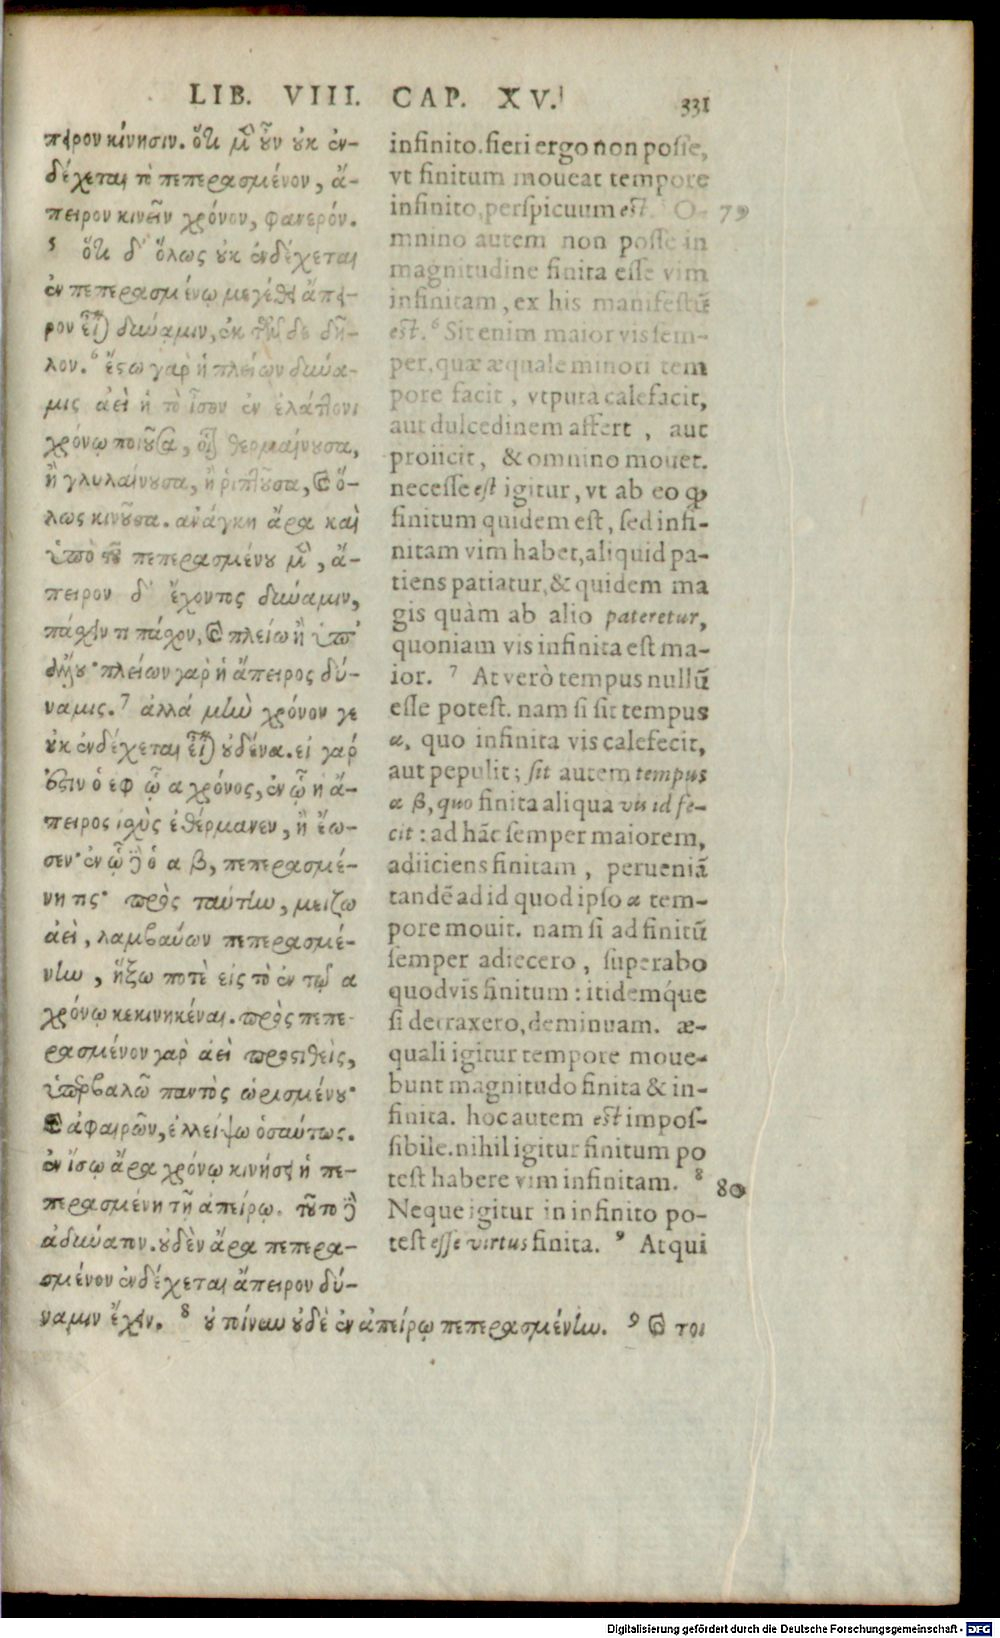 LIB. VIII. CAP. XV. 331
πειρον κίνησιν. ὅτι μὲν οὖν οὐκ ἐν-
δέχεται τὸ πεπερασμένον, ἄ-
πειρον κινεῖν χρόνον, φανερόν.
5 ὅτι δ' ὅλως οὐκ ἐνδέχεται
ἐν πεπερασμένῳ μεγέθει ἄπει-
ρον εἶναι δύναμιν, ἐκ τῶνδε δῆ-
λον. 6 ἔστω γὰρ ἡ πλείων δύνα-
μις ἀεὶ ἡ τὸ ἴσον ἐν ἐλάττονι
χρόνῳ ποιοῦσα, οἷον θερμαίνουσα,
ἢ γλυκαίνουσα, ἢ ῥιπτοῦσα, καὶ ὅ-
λως κινοῦσα. ἀνάγκη ἄρα καὶ
ὑπὸ τοῦ πεπερασμένου μὲν, ἄ-
πειρον δ' ἔχοντος δύναμιν,
πάσχειν τι πάσχον, καὶ πλείω ἢ ὑπ'
ἄλλου· πλείων γὰρ ἡ ἄπειρος δύ-
ναμις. 7 ἀλλὰ μὴν χρόνον γε
οὐκ ἐνδέχεται εἶναι οὐδένα. εἰ γάρ
ἐστιν ὁ ἐφ ᾧ α χρόνος, ἐν ᾧ ἡ ἄ-
πειρος ἰσχὺς ἐθέρμανεν, ἢ ἔω-
σεν· ἐν ᾧ δὲ ὁ α β, πεπερασμέ-
νη τις· πρὸς ταύτην, μείζω
ἀεὶ, λαμβάνων πεπερασμέ-
νην, ἥξω ποτὲ εἰς τὸ ἐν τῷ α
χρόνῳ κεκινηκέναι. πρὸς πεπε-
ρασμένον γὰρ ἀεὶ προστιθεὶς,
ὑπερβαλῶ παντὸς ὡρισμένου·
καὶ ἀφαιρῶν, ἐλλείψω ὡσαύτως.
ἐν ἴσῳ ἄρα χρόνῳ κινήσει ἡ πε-
περασμένη τῇ ἀπείρῳ. τοῦτο δὲ
ἀδύνατον. οὐδὲν ἄρα πεπερα-
σμένον ἐνδέχεται ἄπειρον δύ-
ναμιν ἔχειν. 8 οὐ τοίνυν οὐδὲ ἐν ἀπείρῳ πεπερασμένην. 9 καὶ τοι
infinito. fieri ergo non posse,
vt finitum moueat tempore
infinito, perspicuum est. O- 79
mnino autem non posse in
magnitudine finita esse vim
infinitam, ex his manifestũ
est. 6 Sit enim maior vis sem-
per, quæ æquale minori tem
pore facit, vtputa calefacit,
aut dulcedinem affert, aut
proiicit, & omnino mouet.
necesse est igitur, vt ab eo qd
finitum quidem est, sed infi-
nitam vim habet, aliquid pa-
tiens patiatur, & quidem ma
gis quàm ab alio pateretur,
quoniam vis infinita est ma-
ior. 7 At verò tempus nullũ
esse potest. nam si sit tempus
α, quo infinita vis calefecit,
aut pepulit; sit autem tempus
α β, quo finita aliqua vis id fe-
cit: ad hãc semper maiorem,
adiiciens finitam, perueniã
tandẽ ad id quod ipso α tem-
pore mouit. nam si ad finitũ
semper adiecero, superabo
quodvis finitum: itidemq́ue
si detraxero, deminuam. æ-
quali igitur tempore moue-
bunt magnitudo finita & in-
finita. hoc autem est impos-
sibile. nihil igitur finitum po
test habere vim infinitam. 8
Neque igitur in infinito po- 80
test esse virtus finita. 9 Atqui
Digitalisierung gefördert durch die Deutsche Forschungsgemeinschaft - DFG